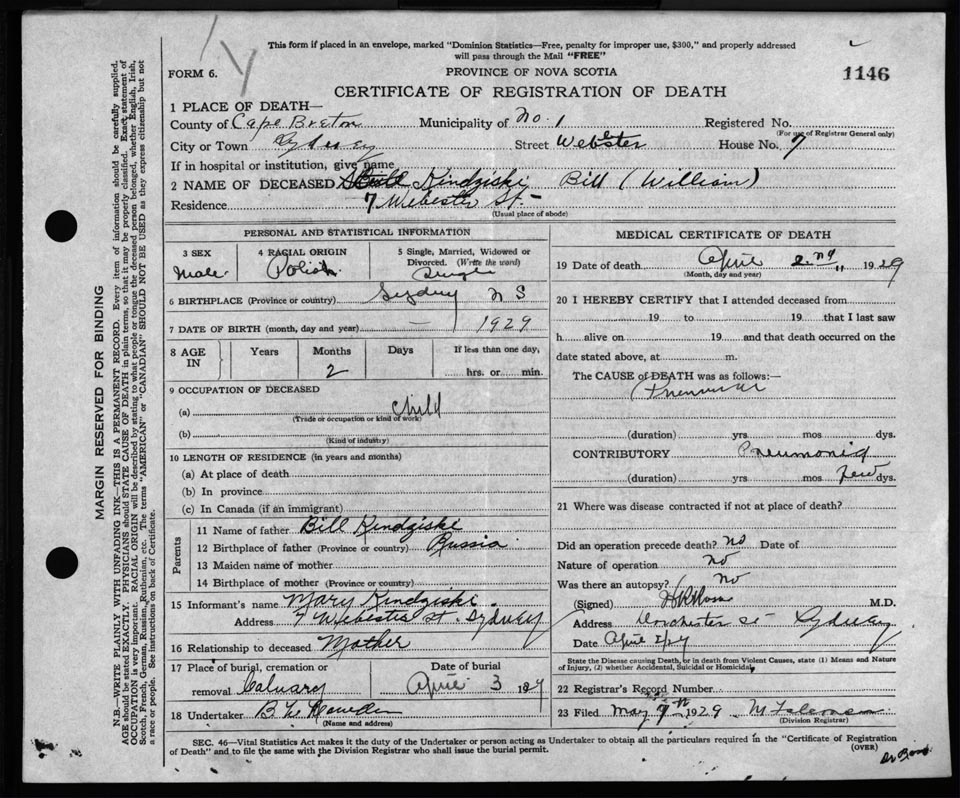 This form if placed in an envelope, marked "Dominion Statistics—Free, penalty for improper use, $300," and properly addressed
will pass through the Mail "FREE"
FORM 6.
PROVINCE OF NOVA SCOTIA
1146
CERTIFICATE OF REGISTRATION OF DEATH
1 PLACE OF DEATH—
County of Cape Breton Municipality of No. 1 Registered No.
(For use of Registrar General only)
City or Town Sydney Street Webster House No. 7
If in hospital or institution, give name
2 NAME OF DECEASED Kindziski Bill (William)
Residence 7 Webester St.
(Usual place of abode)
PERSONAL AND STATISTICAL INFORMATION
3 SEX Male
4 RACIAL ORIGIN Polish
5 Single, Married, Widowed or Divorced. (Write the word) Single
6 BIRTHPLACE (Province or country) Sydney N S
7 DATE OF BIRTH (month, day and year) — 1929
8 AGE IN Years Months 2 Days If less than one day, hrs. or min.
9 OCCUPATION OF DECEASED
(a) Child
(Trade or occupation or kind of work)
(b)
(Kind of industry)
10 LENGTH OF RESIDENCE (in years and months)
(a) At place of death
(b) In province
(c) In Canada (if an immigrant)
Parents
11 Name of father Bill Kindziski
12 Birthplace of father (Province or country) Russia
13 Maiden name of mother
14 Birthplace of mother (Province or country)
15 Informant's name Mary Kindziski
Address 7 Webester St. Sydney
16 Relationship to deceased Mother
17 Place of burial, cremation or removal Calvary
Date of burial April 3 1929
18 Undertaker
(Name and address)
MEDICAL CERTIFICATE OF DEATH
19 Date of death April 2nd 1929
(Month, day and year)
20 I HEREBY CERTIFY that I attended deceased from
19 to 19 that I last saw
h alive on 19 and that death occurred on the
date stated above, at m.
The CAUSE of DEATH was as follows:—
(duration) yrs mos dys.
CONTRIBUTORY Pneumonia
(duration) yrs. mos few dys.
21 Where was disease contracted if not at place of death?
Did an operation precede death? no Date of
Nature of operation no
Was there an autopsy? no
(Signed) M.D.
Address Dorchester St Sydney
Date April
State the Disease causing Death, or in death from Violent Causes, state (1) Means and Nature
of Injury, (2) whether Accidental, Suicidal or Homicidal
22 Registrar's Record Number
23 Filed May 7th 1929
(Division Registrar)
SEC. 46—Vital Statistics Act makes it the duty of the Undertaker or person acting as Undertaker to obtain all the particulars required in the "Certificate of Registration
of Death" and to file the same with the Division Registrar who shall issue the burial permit.
(OVER)
MARGIN RESERVED FOR BINDING
N.B.—WRITE PLAINLY WITH UNFADING INK—THIS IS A PERMANENT RECORD. Every item of information should be carefully supplied.
AGE should be stated EXACTLY. PHYSICIANS should STATE CAUSE OF DEATH in plain terms, so that it may be properly classified. Exact statement of
OCCUPATION is very important. RACIAL ORIGIN will be described by stating to what people or tongue the deceased person belonged, whether English, Irish,
Scotch, French, German, Russian, Ruthenian, etc. The terms "AMERICAN" or "CANADIAN" SHOULD NOT BE USED as they express citizenship but not
a race or people. See instructions on back of Certificate.